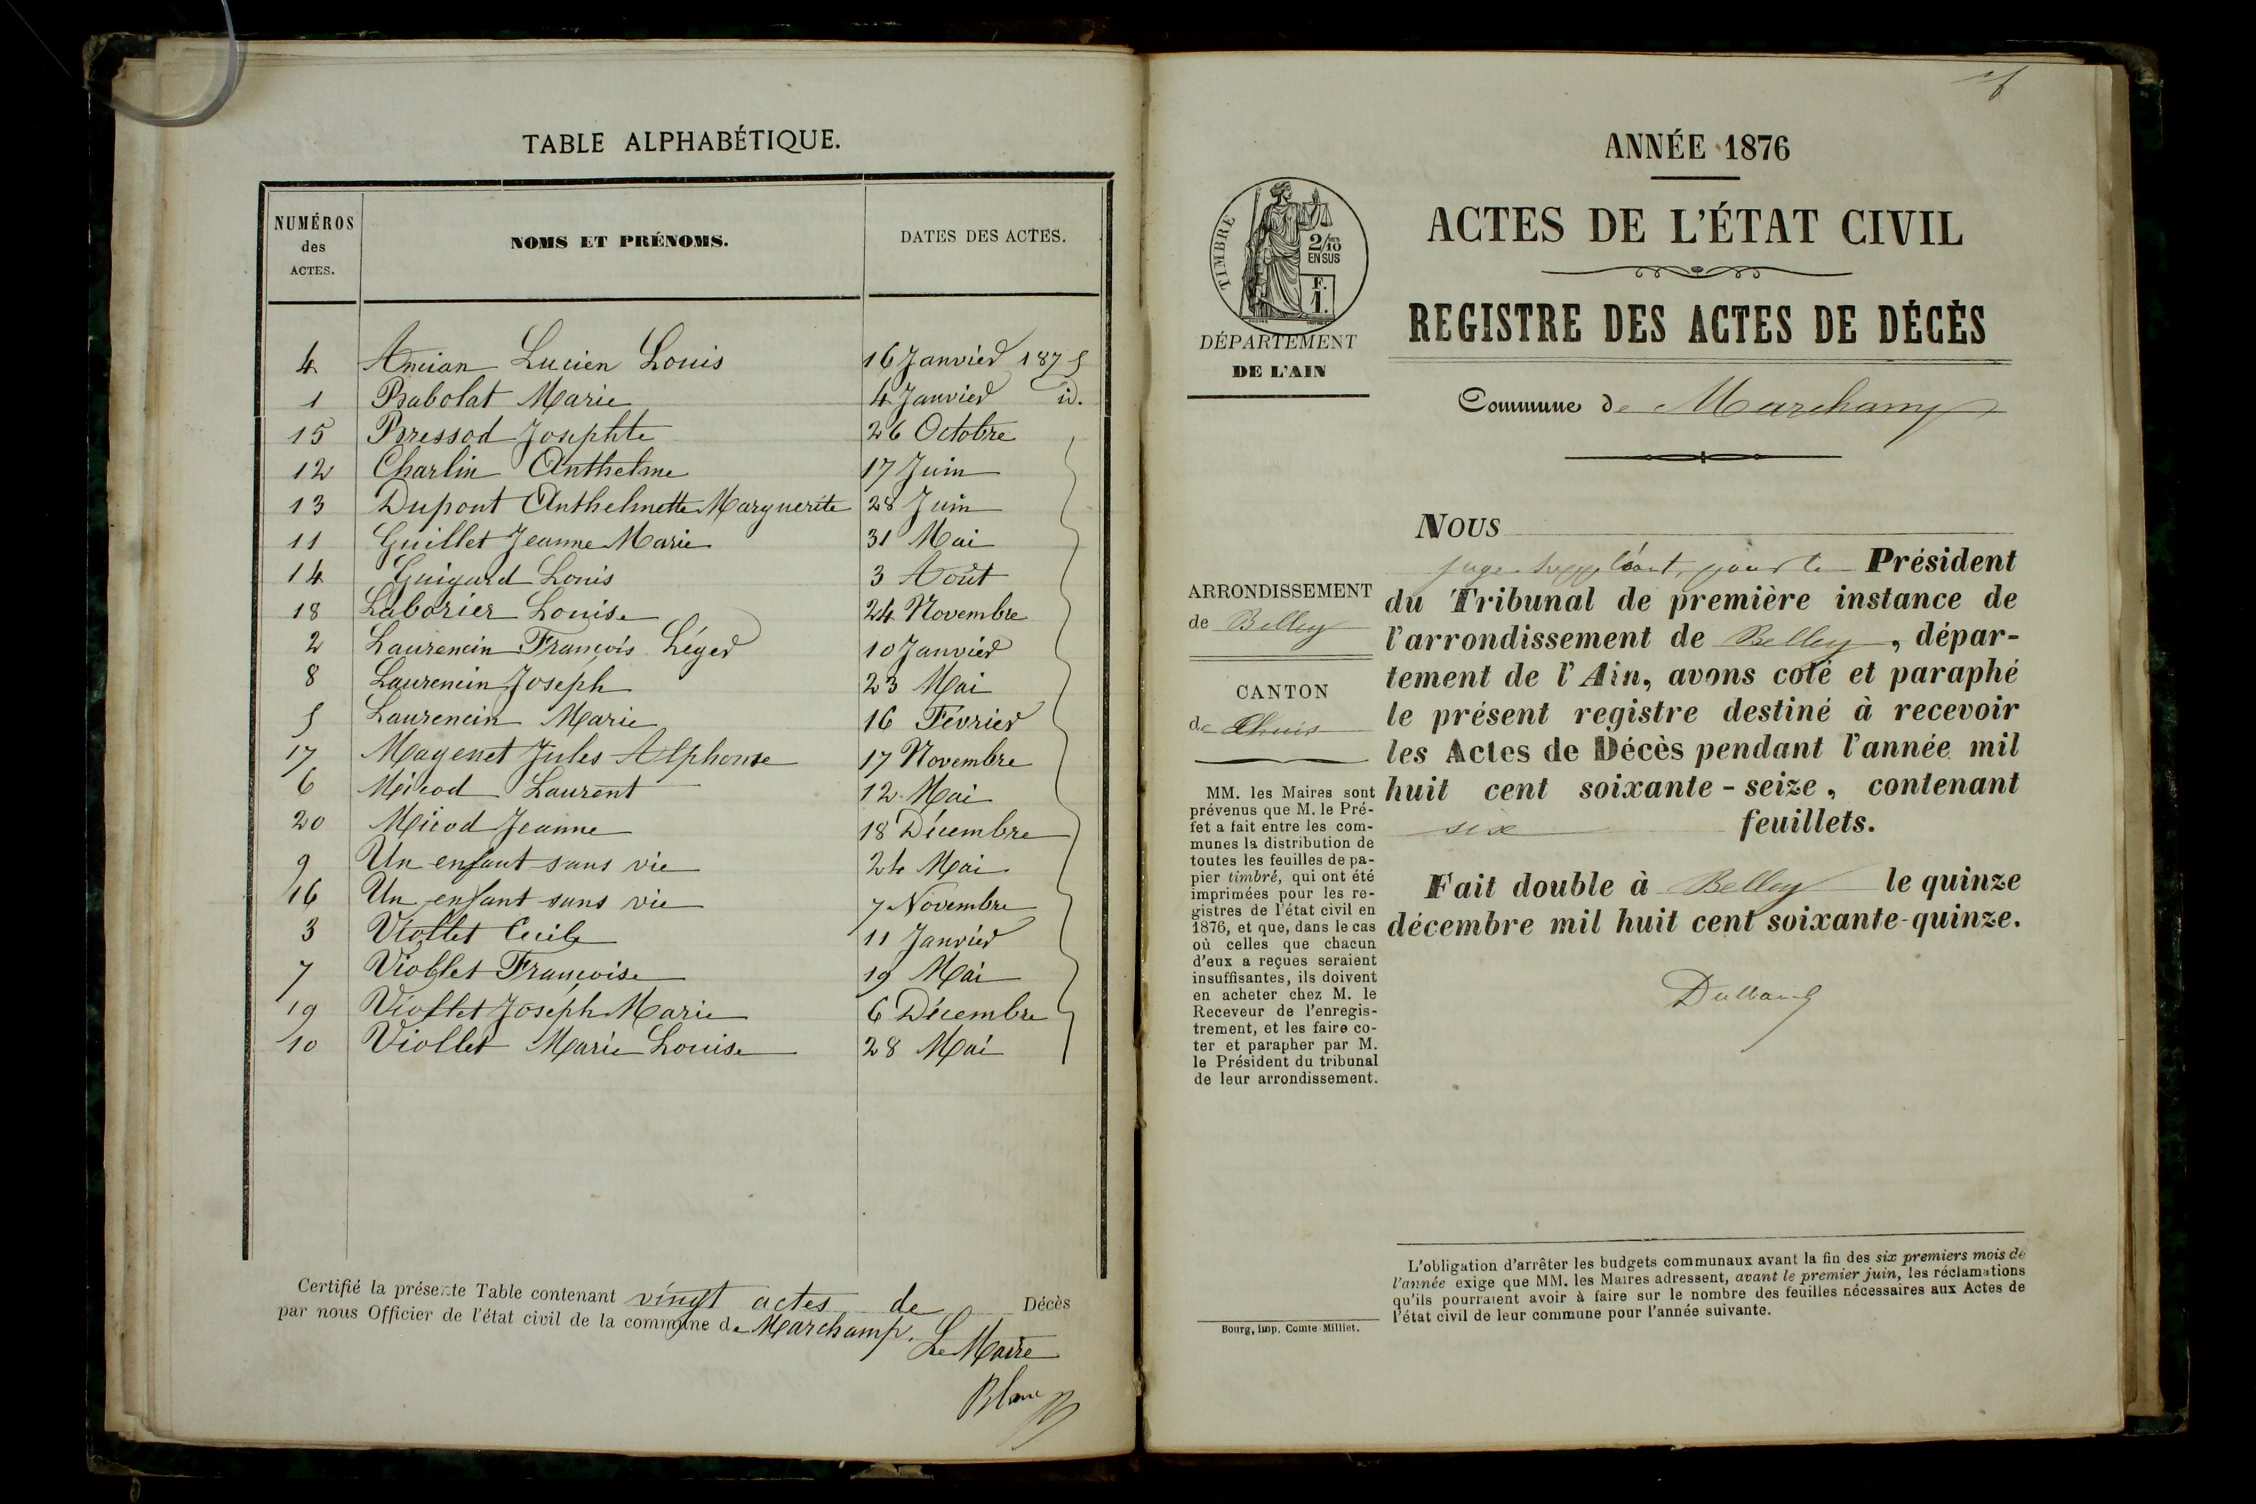 TABLE ALPHABÉTIQUE.
NUMÉROS des ACTES. NOMS ET PRÉNOMS. DATES DES ACTES.
4 Ancian Lucien Louis 16 Janvier 1875
1 Babolat Marie 4 Janvier id.
15 Bressod Josephte 26 Octobre
12 Charlin Anthelme 17 Juin
13 Dupont Anthelmette Marguerite 28 Juin
11 Guillet Jeanne Marie 31 Mai
14 Guigard Louis 3 Août
18 Laborier Louise 24 Novembre
2 Laurencin François Léger 10 Janvier
8 Laurencin Joseph 23 Mai
5 Laurencin Marie 16 Février
17 Magenet Jules Alphonse 17 Novembre
6 Micod Laurent 12 Mai
20 Micod Jeanne 18 Décembre
9 Un enfant sans vie 24 Mai
16 Un enfant sans vie 7 Novembre
3 Viollet Cecile 11 Janvier
7 Viollet Françoise 19 Mai
19 Viollet Joseph Marie 6 Décembre
10 Viollet Marie Louise 28 Mai
Certifié la présente Table contenant vingt actes de Décès
par nous Officier de l'état civil de la commune de Marchamp.
Le Maire
Blanc
ANNÉE 1876
ACTES DE L'ÉTAT CIVIL
REGISTRE DES ACTES DE DÉCÈS
Commune de Marchamp
TIMBRE
2/10
EN SUS
F.
1.
DÉPARTEMENT
DE L'AIN
ARRONDISSEMENT
de Belley
CANTON
de Lhuis
MM. les Maires sont
prévenus que M. le Pré-
fet a fait entre les com-
munes la distribution de
toutes les feuilles de pa-
pier timbré, qui ont été
imprimées pour les re-
gistres de l'état civil en
1876, et que, dans le cas
où celles que chacun
d'eux a reçues seraient
insuffisantes, ils doivent
en acheter chez M. le
Receveur de l'enregis-
trement, et les faire co-
ter et parapher par M.
le Président du tribunal
de leur arrondissement.
Bourg, imp. Comte-Milliet.
NOUS
juge suppléant, pour le Président
du Tribunal de première instance de
l'arrondissement de Belley, dépar-
tement de l'Ain, avons coté et paraphé
le présent registre destiné à recevoir
les Actes de Décès pendant l'année mil
huit cent soixante-seize, contenant
six feuillets.
Fait double à Belley le quinze
décembre mil huit cent soixante-quinze.
L'obligation d'arrêter les budgets communaux avant la fin des six premiers mois de
l'année exige que MM. les Maires adressent, avant le premier juin, les réclamations
qu'ils pourraient avoir à faire sur le nombre des feuilles nécessaires aux Actes de
l'état civil de leur commune pour l'année suivante.